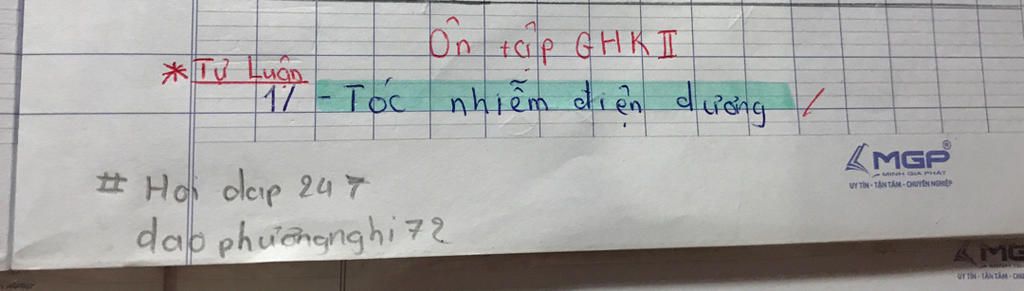 Ôn tập GHK II
* Tự Luận
1/ - Tóc nhiễm điện dương /
MGP®
MINH GIA PHÁT
UY TÍN - TẬN TÂM - CHUYÊN NGHIỆP
# Hoi dap 247
dao phươngnghi72
MG
UY TÍN - TẬN TÂM - CHU